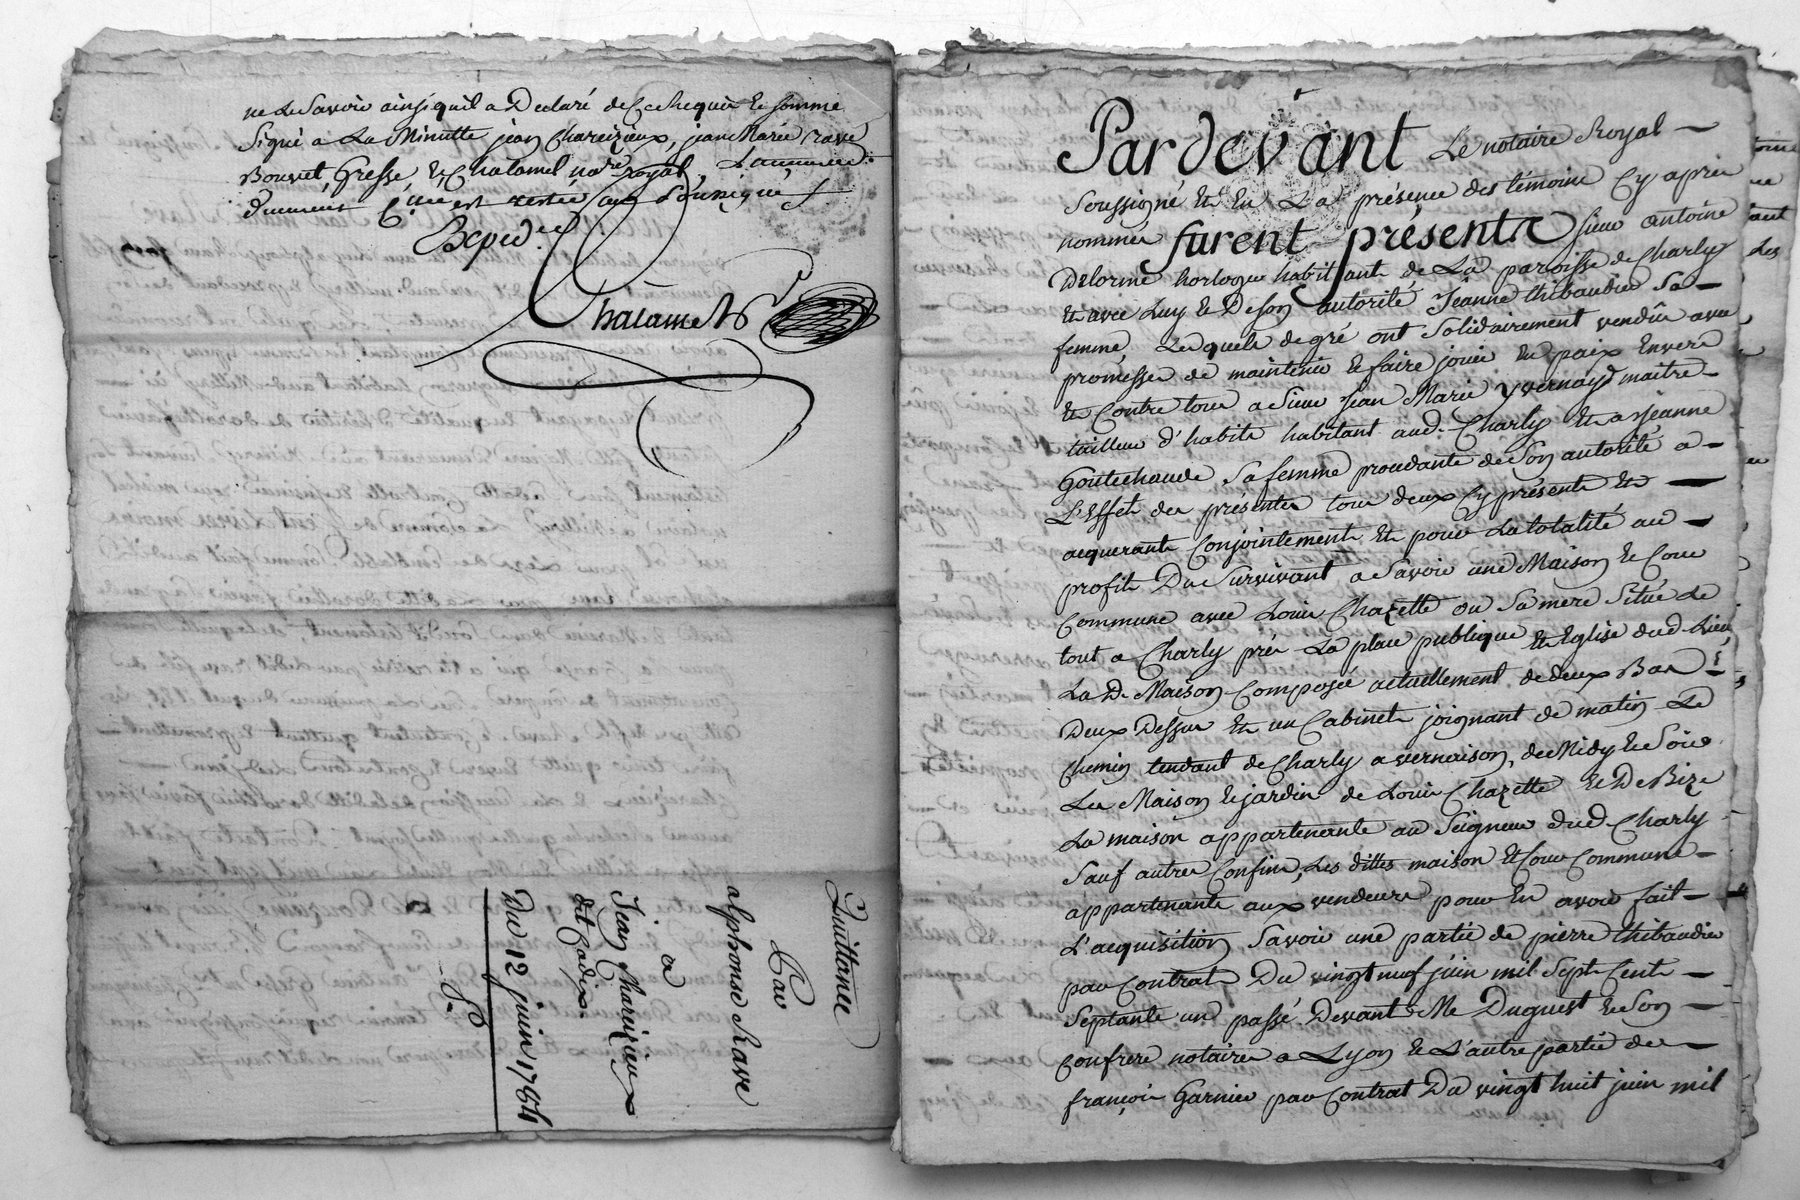 ne le Savoir ainsi quil a Declaré de ce Requis & Sommé
Signé a La Minutte jean Chareizieux, jean Marie rave
Bouvet Gresse & Chalamel no.re royal,
est restée au Soussigné
Exped.ée
Chalamel
Quittance
Par
alphonse Rave
a
Jean Chareizieux
dit Cadix
Du 12 juin 1784
Pardevant Le notaire Royal
Soussigné Et En La présence des témoins Cy aprés
nommés furent présents Sieur antoine
Delorme horloger habitant de La paroisse de Charly
Et avec Luy & De Son autorité Jeanne thibaudier Sa
femme, Lesquels de gré ont Solidairement vendû avec
promesse de maintenir & faire jouir En paix Envers
Et Contre tous a Sieur Jean Marie yvernay maitre
tailleur d'habits habitant aud. Charly Et a Jeanne
Goutechaude Sa femme procedante de Son autorité a
L'Effet des présentes tous deux Cy présents Et
acquerants Conjointement Et pour La totalité au
profit Du Survivant a Savoir une Maison & Cour
Commune avec Louis Chazette ou Sa mere Situé Le
tout a Charly prés La place publique Et Eglise dud. Lieu,
La D. Maison Composée actuellement de deux Bas
Deux Dessus Et un Cabinet joignant de matin Le
Chemin tendant de Charly a vernaison, de Midy & Soir
Les Maison & jardin de Louis Chazette & De Bize
La maison appartenante au Seigneur dud. Charly
Sauf autres Confins, Les dittes maison Et Cour Commune
appartenants aux vendeurs pour En avoir fait
L'acquisition Savoir une partie de pierre thibaudier
par Contrat Du vingt neuf juin mil Sept Cent
Septante un passé Devant Me Duguest & Son
Confrere notaires a Lyon & L'autre partie de
françois Garnier par Contrat Du vingt huit juin mil